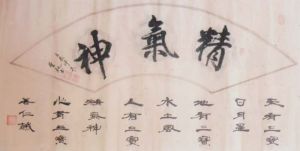 精氣神
天有三寶
日月星
地有三寶
水土風
人有三寶
精氣神
心有三寶
善仁誠